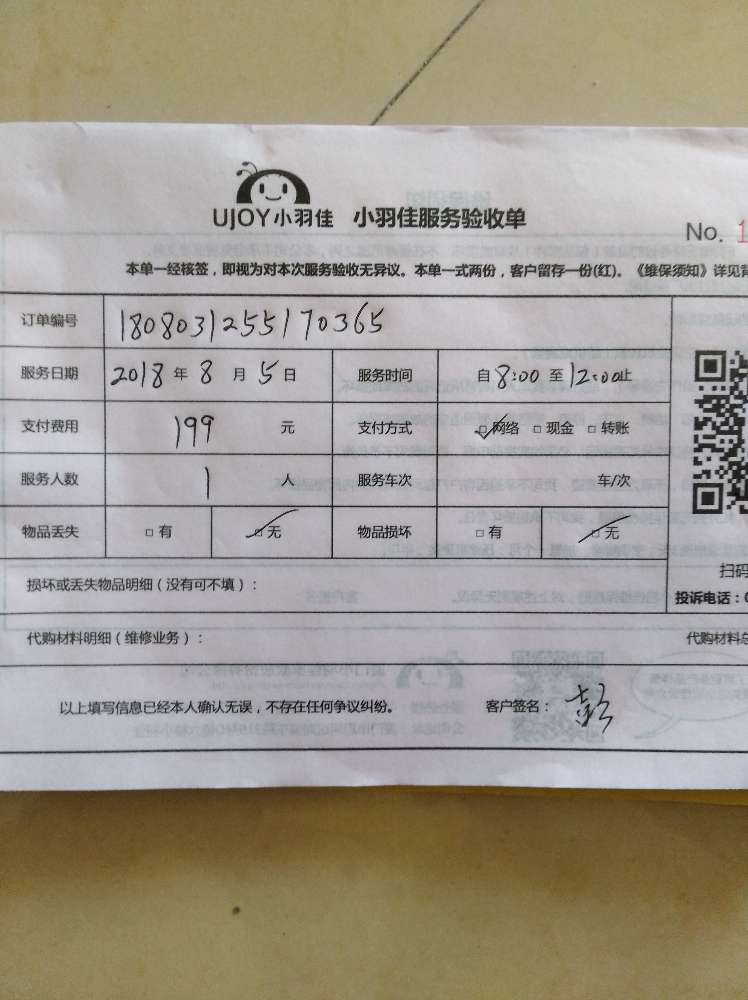 UJOY小羽佳 小羽佳服务验收单
No. 1
本单一经核签，即视为对本次服务验收无异议。本单一式两份，客户留存一份(红)。《维保须知》详见背
订单编号 1808031255170365
服务日期 2018 年 8 月 5 日 服务时间 自 8:00 至 12:00 止
支付费用 199 元 支付方式 ☑网络 □现金 □转账
服务人数 1 人 服务车次 车/次
物品丢失 □有 ☑无 物品损坏 □有 ☑无
扫码
损坏或丢失物品明细（没有可不填）：
投诉电话：0
代购材料明细（维修业务）：
代购材料总
以上填写信息已经本人确认无误，不存在任何争议纠纷。 客户签名： 彭